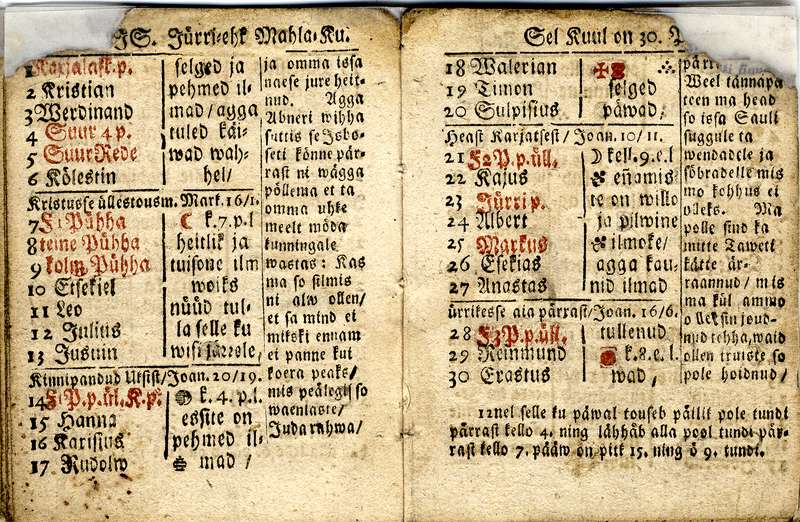 JS. Jürri-ehk Mahla-Ku.
1 Karjalask.p.
2 Kristian
3 Werdinand
4 Suur 4 p.
5 Suur Rede
6 Kölestin
selged ja
pehmed il-
mad/agga
tuled käi-
wad wah-
hel/
Kristusse üllestousm. Mark. 16/1.
7 F1 Pühha
8 teine Pühha
9 kolm Pühha
10 Etsekiel
11 Leo
12 Julius
13 Justin
☾ k.7.p.l
heitlik ja
tuisone ilm
woiks
nüüd tul-
la selle ku
wisi järrele,
Kinnipandud Uksist/Joan. 20/19.
14 F1P.p.ül.K.p.
15 Hanna
16 Karisius
17 Rudolw
k. 4. p.l.
essite on
pehmed il-
mad /
ja omma issa
naese jure heit-
nud. Agga
Abneri wihha
süttis se Isbo-
seti könne pär-
rast ni wägga
pöllema et ta
omma uhke
meelt möda
kunningale
wastas: Kas
ma so silmis
ni alw ollen/
et sa mind ei
mikski ennam
ei panne kui
koera peaks/
mis peälegi so
waenlaste/
Juda rahwa/
Sel Kuul on 30.
18 Walerian
19 Timon
20 Sulpisius
selged
päwad,
Heast Karjatsest/Joan. 10/11.
21 F2 P.p.üll.
22 Kajus
23 Jürri p.
24 Albert
25 Markus
26 Esekias
27 Anastas
☽ kell.9.e.l
eñamis-
te on willo
ja pilwine
ilmoke/
agga kau-
nid ilmad
ürrikesse aia pärrast/Joan. 16/6.
28 F3 P.p.üll.
29 Reinmund
30 Erastus
tullenud
k.8.e.l.
wad,
pärr
Weel tännäpä
teen ma head
so issa Sauli
suggule ta
wendadele ja
söbradele mis
mo kohhus ei
olleks. Ma
polle sind ka
mitte Taweti
kätte är-
raannud/ mis
ma kül ammo
olleksin joud-
nud tehha, waid
ollen truiste so
pole hoidnud/
12nel selle ku päwal touseb päilik pole tundi
pärrast kello 4. ning lähhäb alla pool tundi pär-
rast kello 7. pääw on pitk 15. ning ö 9. tundi.